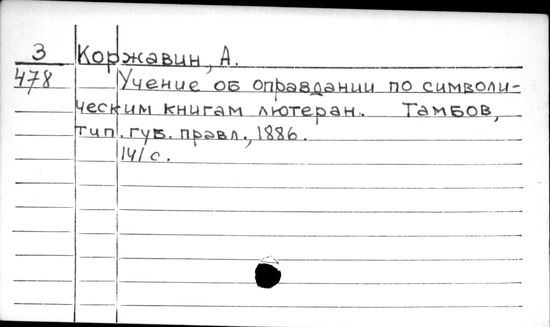 3 Коржавин, А.
478 Учение об оправдании по символи-
ческим книгам лютеран. Тамбов,
тип. губ. правл., 1886.
141 с.